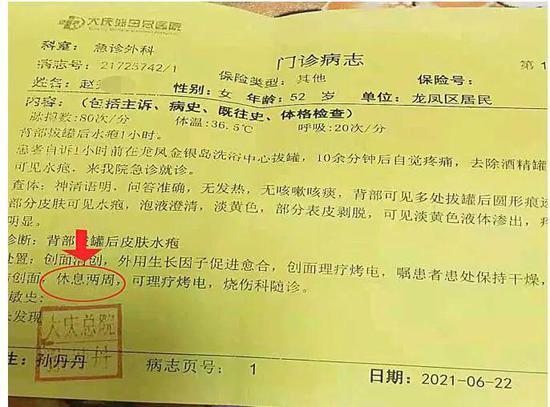 大庆油田总医院
科室: 急诊外科
门诊病志
第 1
病志号: 21725742/1 保险类型: 其他 保险号:
姓名: 赵 性别: 女 年龄: 52 岁 单位: 龙凤区居民
内容: (包括主诉、病史、既往史、体格检查)
脉搏数:80次/分 体温:36.5℃ 呼吸:20次/分
背部拔罐后水疱1小时。
患者自诉1小时前在龙凤金银岛洗浴中心拔罐, 10余分钟后自觉疼痛, 去除酒精罐
可见水疱, 来我院急诊就诊。
查体: 神清语明, 问答准确, 无发热, 无咳嗽咳痰, 背部可见多处拔罐后圆形痕
部分皮肤可见水疱, 泡液澄清, 淡黄色, 部分表皮剥脱, 可见淡黄色液体渗出, 疼
明显。
诊断: 背部拔罐后皮肤水疱
处置: 创面清创, 外用生长因子促进愈合, 创面理疗烤电, 嘱患者患处保持干燥,
创面, 休息两周, 可理疗烤电, 烧伤科随诊。
敏史:
发现
大庆总院
生: 孙丹丹 病志页号: 1 日期: 2021-06-22